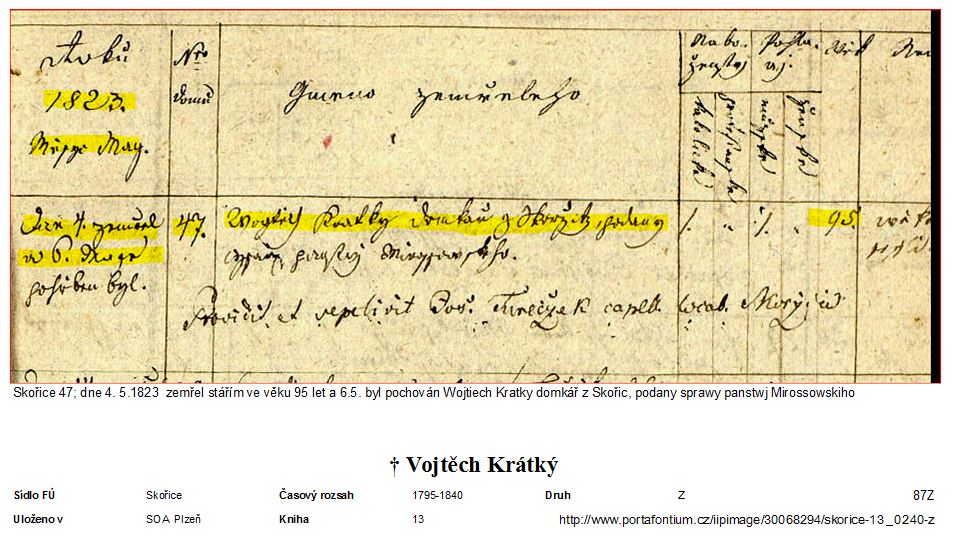 Roku
1823.
Měsyce May.
Nro
domu
Gmeno zemřeleho
Nabo-
ženstwj
Pohla-
wj.
Wěk
katolicke
mužske
ženske
Dne 4. zemřel
a 6. dto
pohřben byl.
47.
Wogtěch Kratky domkař z Skořicz, podany
sprawy panstwj Mirossowskeho.
95.
Providit et sepelivit Jos. Tureczek capell. local. Skoržic
Skořice 47; dne 4. 5.1823 zemřel stářím ve věku 95 let a 6.5. byl pochován Wojtiech Kratky domkář z Skořic, podany sprawy panstwj Mirossowskiho
† Vojtěch Krátký
Sídlo FÚ Skořice Časový rozsah 1795-1840 Druh Z 87Z
Uloženo v SOA Plzeň Kniha 13 http://www.portafontium.cz/iipimage/30068294/skorice-13_0240-z